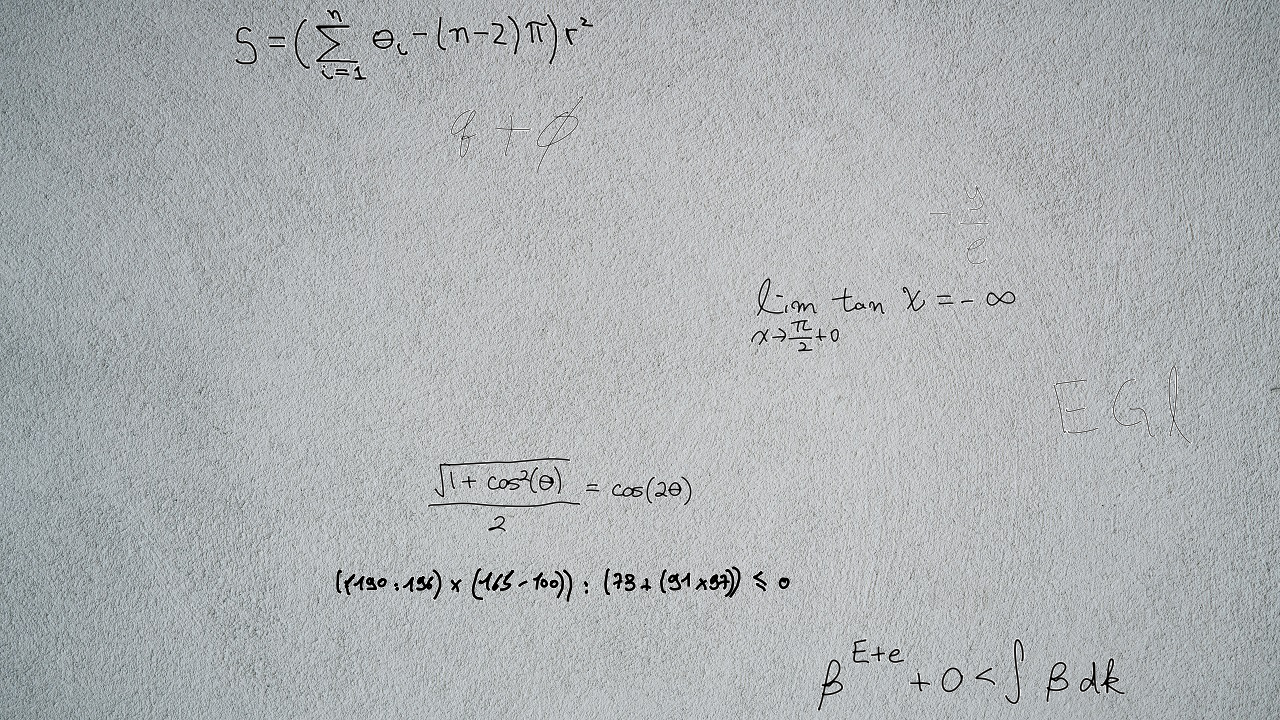 S = (∑_{i=1}^{n} θ_i - (n-2)π)r²
q + φ
- y/e
lim_{x→π/2+0} tan x = -∞
E G l
√(1 + cos²(θ)) / 2 = cos(2θ)
((190 : 196) × (165 - 100)) : (78 + (91 × 97)) ≤ 0
β^{E+e} + 0 < ∫ β dk